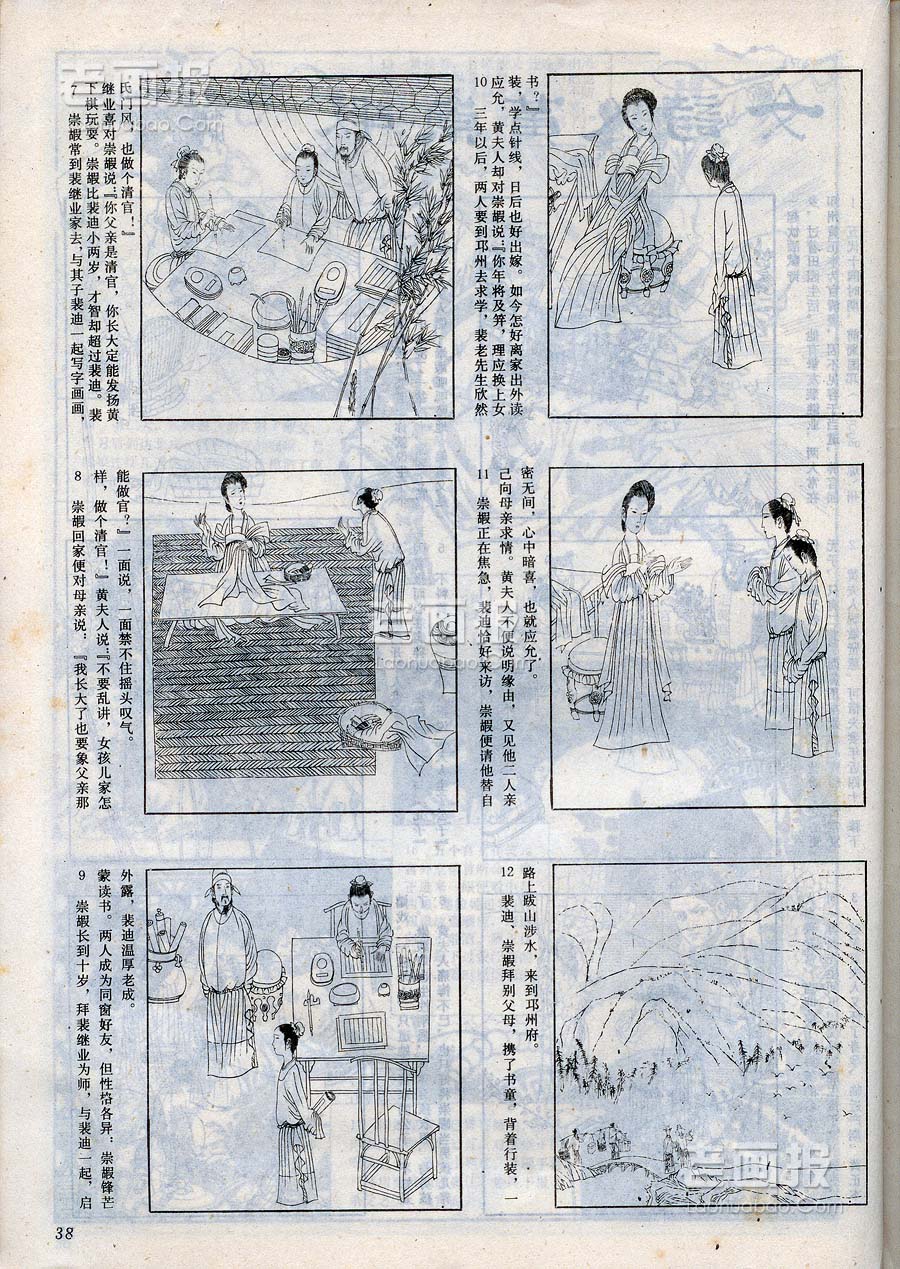 老画报
Laohuabao.Com
7 崇嘏常到裴继业家去，与其子裴迪一起写字画画，
下棋玩耍。崇嘏比裴迪小两岁，才智却超过裴迪。裴
继业喜对崇嘏说：『你父亲是清官，你长大定能发扬黄
氏门风，也做个清官！』
8 崇嘏回家便对母亲说：『我长大了也要象父亲那
样，做个清官！』黄夫人说：『不要乱讲，女孩儿家怎
能做官？』一面说，一面禁不住摇头叹气。
9 崇嘏长到十岁，拜裴继业为师，与裴迪一起，启
蒙读书。两人成为同窗好友，但性格各异：崇嘏锋芒
外露，裴迪温厚老成。
10 三年以后，两人要到邛州去求学，裴老先生欣然
应允，黄夫人却对崇嘏说：『你年将及笄，理应换上女
装，学点针线，日后也好出嫁。如今怎好离家出外读
书？』
11 崇嘏正在焦急，裴迪恰好来访，崇嘏便请他替自
己向母亲求情。黄夫人不便说明缘由，又见他二人亲
密无间，心中暗喜，也就应允了。
12 裴迪、崇嘏拜别父母，携了书童，背着行装，一
路上跋山涉水，来到邛州府。
老画报
Laohuabao.Com
老画报
Laohuabao.Com
38